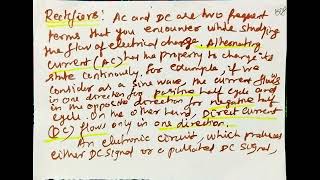 Rectifiers: AC and DC are two frequent
terms that you encounter while studying
the flow of electrical charge. Alternating
current (AC) has the property to change its
state continuously. For example, if we
consider as a sine wave, the current flows
in one direction for positive half cycle and
in the opposite direction for negative half
cycle. On the other hand, Direct Current
(DC) flows only in one direction.
An electronic circuit, which produces
either DC signal or a pulsated DC signal,